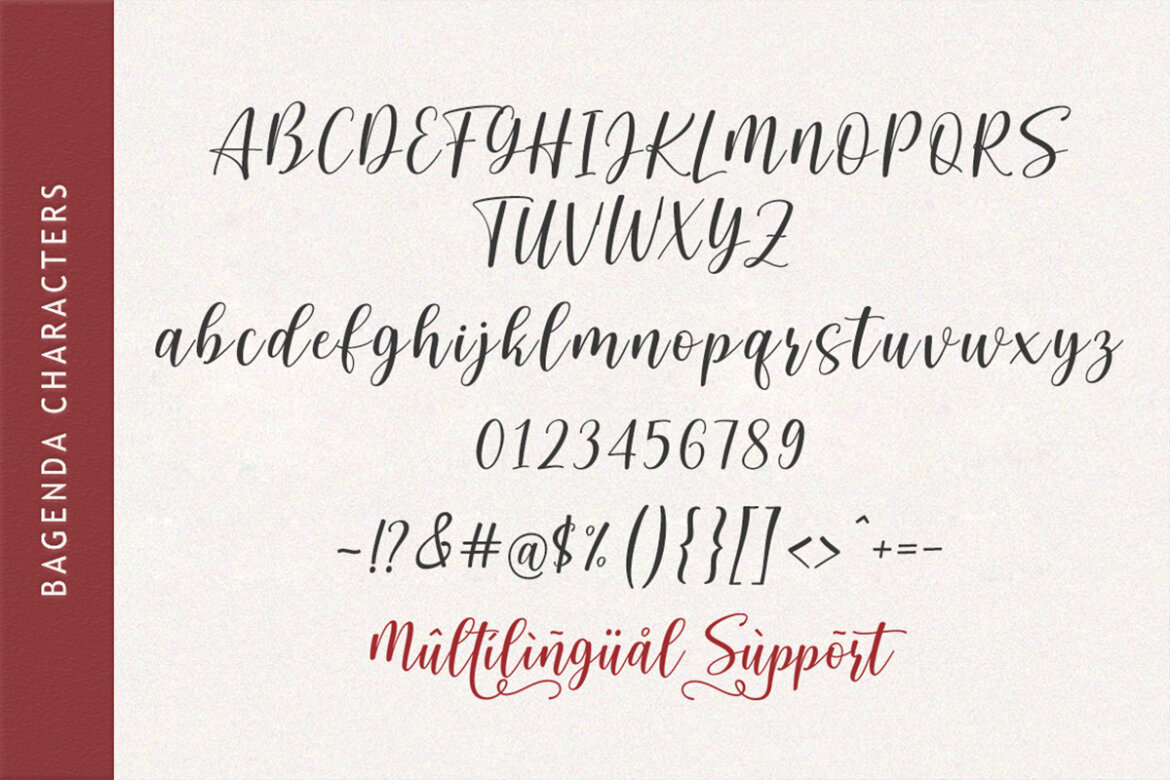 BAGENDA CHARACTERS
ABCDEFGHIJKLMNOPQRS
TUVWXYZ
abcdefghijklmnopqrstuvwxyz
0123456789
~!?&#@$%(){}[]<>^+=-
Mûltílìñgüål Sùppõrt